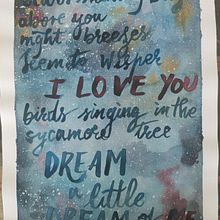 above you
night breezes
seem to wisper
I LOVE YOU
birds singing in the
sycamore tree
DREAM
a little
DREAM OF ME